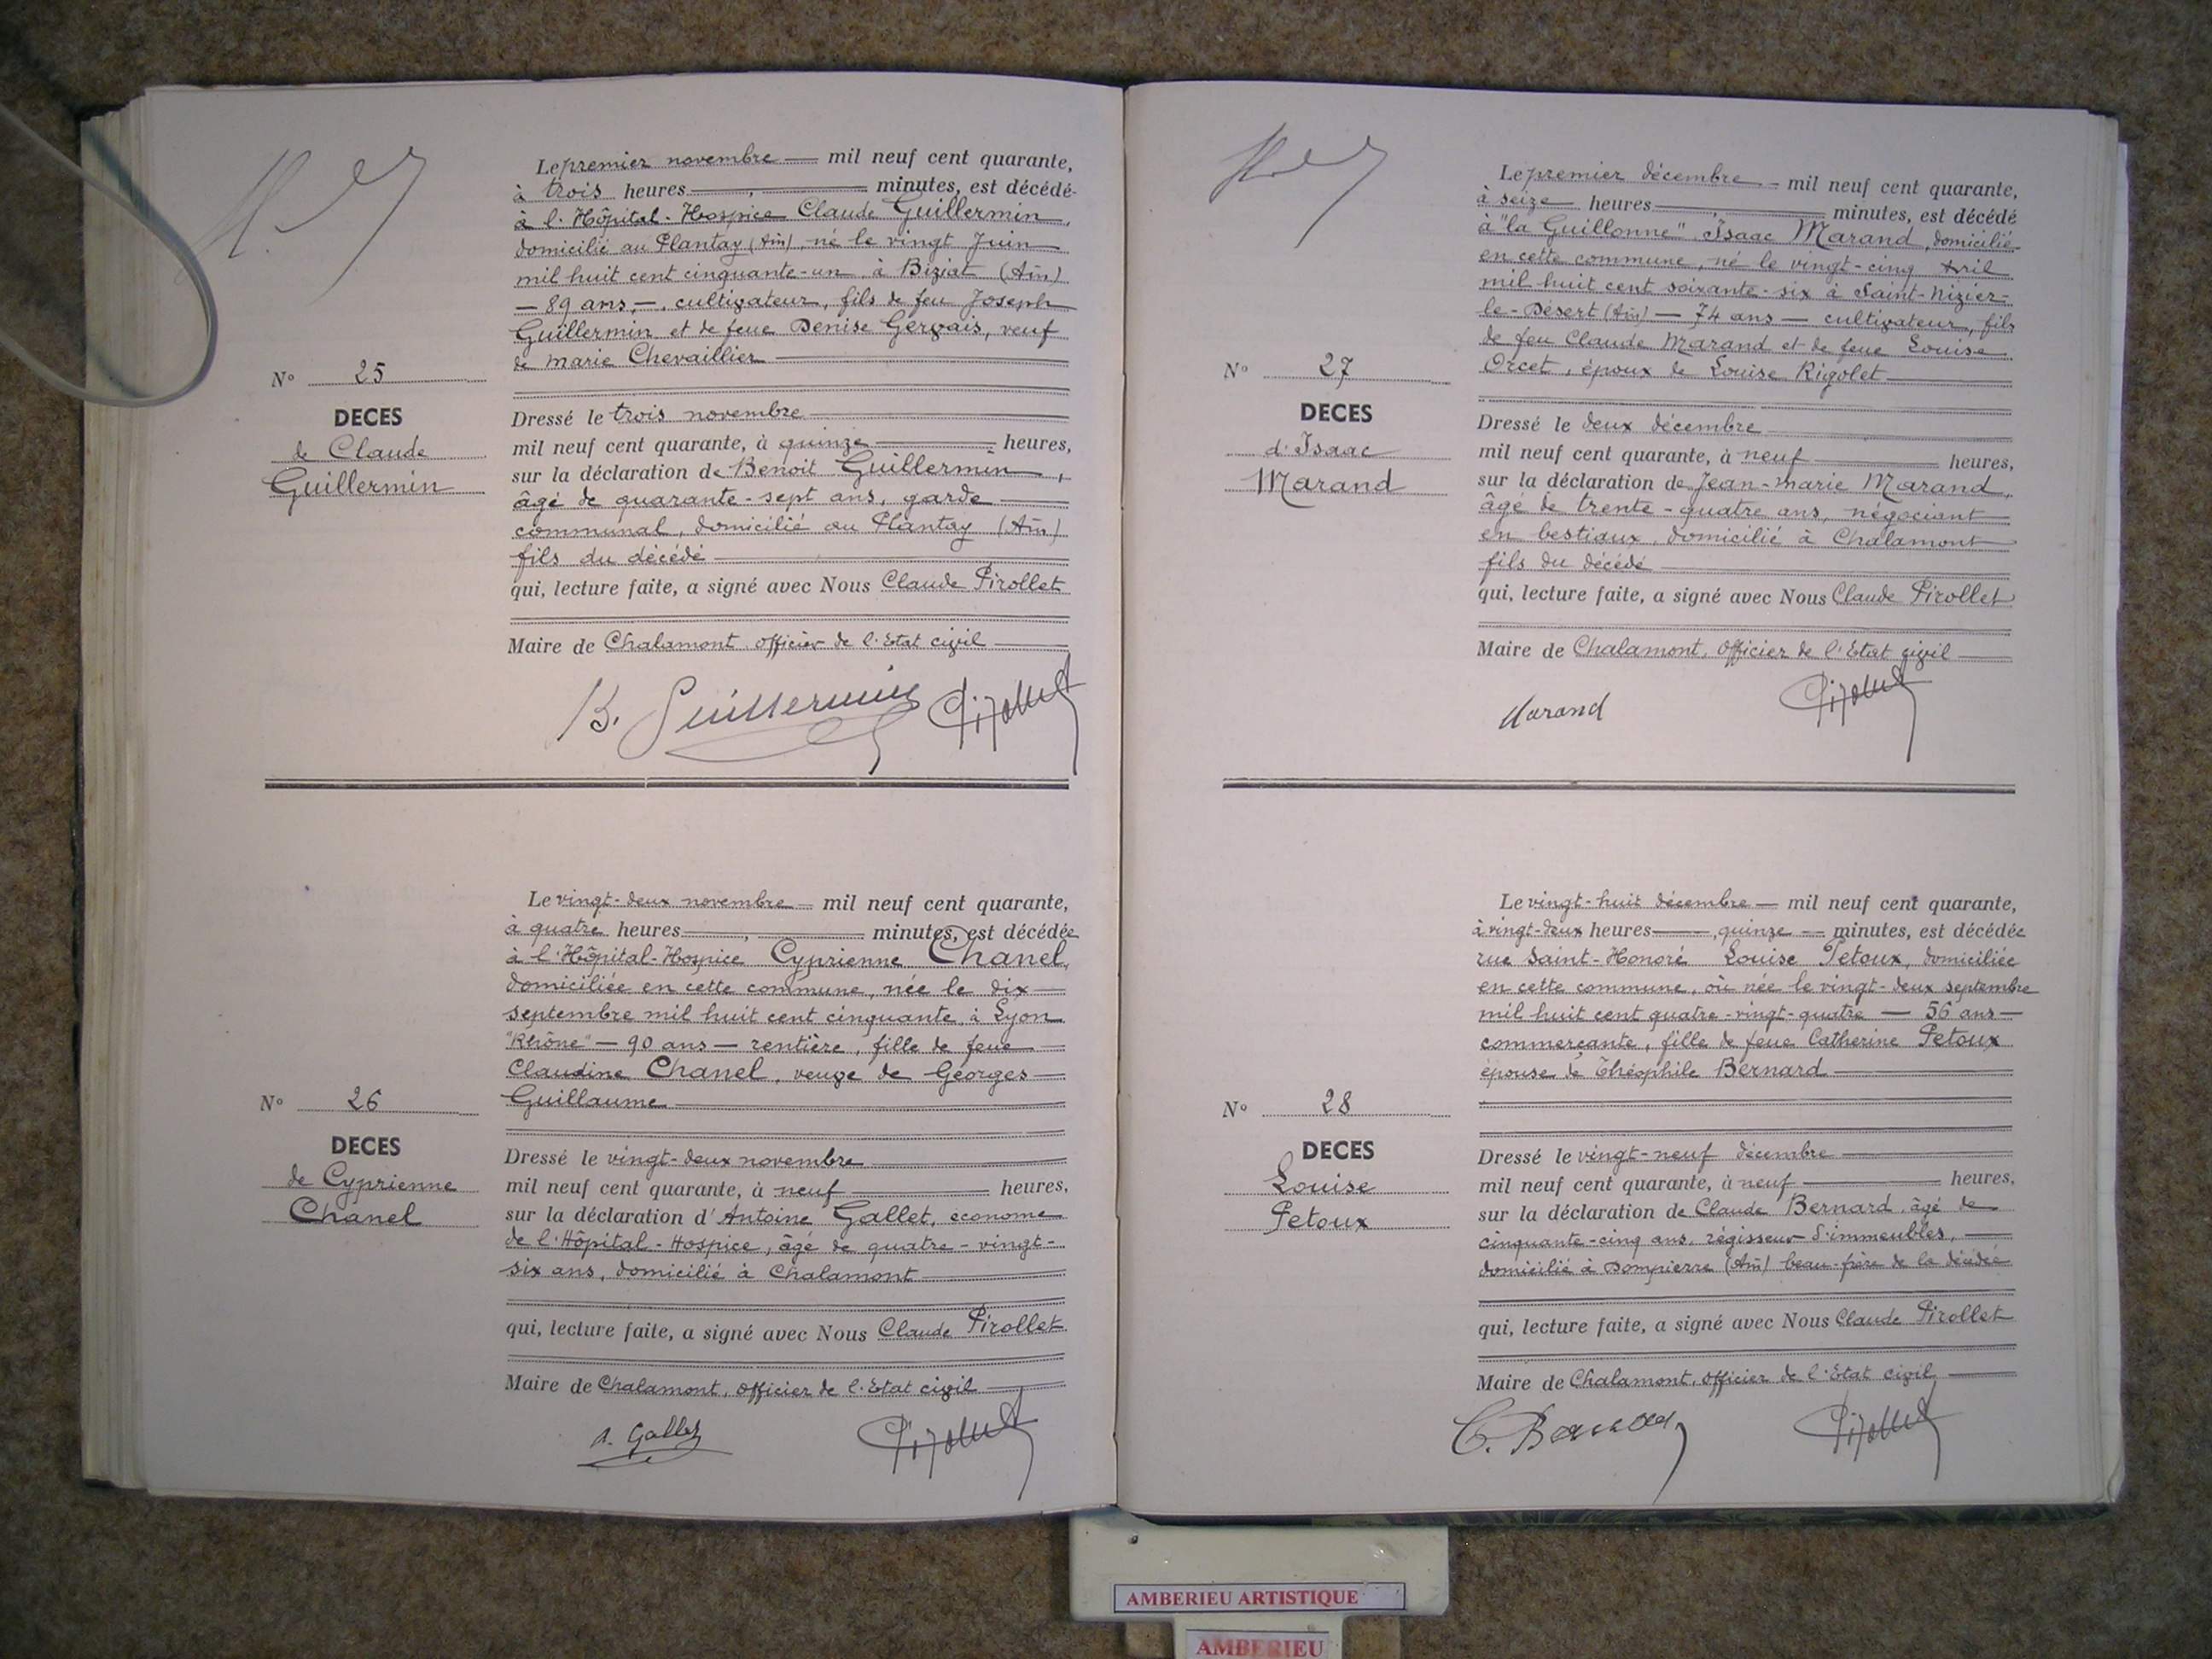 Le premier novembre — mil neuf cent quarante,
à trois heures —, — minutes, est décédé
à l'Hôpital-Hospice Claude Guillermin,
domicilié au Plantay (Ain) né le vingt Juin
mil huit cent cinquante-un à Biziat (Ain)
— 89 ans —, cultivateur, fils de feu Joseph
Guillermin et de feue Denise Gervais, veuf
de Marie Chevaillier
N° 25
DECES
de Claude
Guillermin
Dressé le trois novembre
mil neuf cent quarante, à quinze heures,
sur la déclaration de Benoit Guillermin,
âgé de quarante-sept ans, garde
communal, domicilié au Plantay (Ain)
fils du décédé
qui, lecture faite, a signé avec Nous Claude Pirollet
Maire de Chalamont officier de l'Etat civil
B. Guillermin Pirollet
Le vingt-deux novembre — mil neuf cent quarante,
à quatre heures —, — minutes, est décédée
à l'Hôpital-Hospice Cyprienne Chanel,
domiciliée en cette commune, née le dix
septembre mil huit cent cinquante à Lyon
"Rhône" — 90 ans — rentière, fille de feue
Claudine Chanel, veuve de Georges
Guillaume
N° 26
DECES
de Cyprienne
Chanel
Dressé le vingt-deux novembre
mil neuf cent quarante, à neuf heures,
sur la déclaration d'Antoine Gallet, econome
de l'Hôpital-Hospice, âgé de quatre-vingt-
six ans, domicilié à Chalamont
qui, lecture faite, a signé avec Nous Claude Pirollet
Maire de Chalamont, officier de l'Etat civil
A. Gallet Pirollet
Le premier décembre — mil neuf cent quarante,
à seize heures —, — minutes, est décédé
à "la Guillonne" Isaac Marand, domicilié
en cette commune, né le vingt-cinq Avril
mil huit cent soixante-six à Saint-Nizier-
le-Désert (Ain) — 74 ans — cultivateur, fils
de feu Claude Marand et de feue Louise
Orcet, époux de Louise Rigolet
N° 27
DECES
d'Isaac
Marand
Dressé le deux décembre
mil neuf cent quarante, à neuf heures,
sur la déclaration de Jean-Marie Marand,
âgé de trente-quatre ans, négociant
en bestiaux, domicilié à Chalamont
fils du décédé
qui, lecture faite, a signé avec Nous Claude Pirollet
Maire de Chalamont, Officier de l'Etat civil
Marand Pirollet
Le vingt-huit décembre — mil neuf cent quarante,
à vingt-deux heures —, quinze — minutes, est décédée
rue Saint-Honoré Louise Petoux, domiciliée
en cette commune, où née le vingt-deux septembre
mil huit cent quatre-vingt-quatre — 56 ans —
commerçante, fille de feue Catherine Petoux
épouse de Théophile Bernard
N° 28
DECES
Louise
Petoux
Dressé le vingt-neuf décembre
mil neuf cent quarante, à neuf heures,
sur la déclaration de Claude Bernard, âgé de
cinquante-cinq ans, régisseur d'immeubles,
domicilié à Dompierre (Ain) beau-frère de la décédée
qui, lecture faite, a signé avec Nous Claude Pirollet
Maire de Chalamont, officier de l'Etat civil
C. Bernard Pirollet
AMBERIEU ARTISTIQUE
AMBERIEU